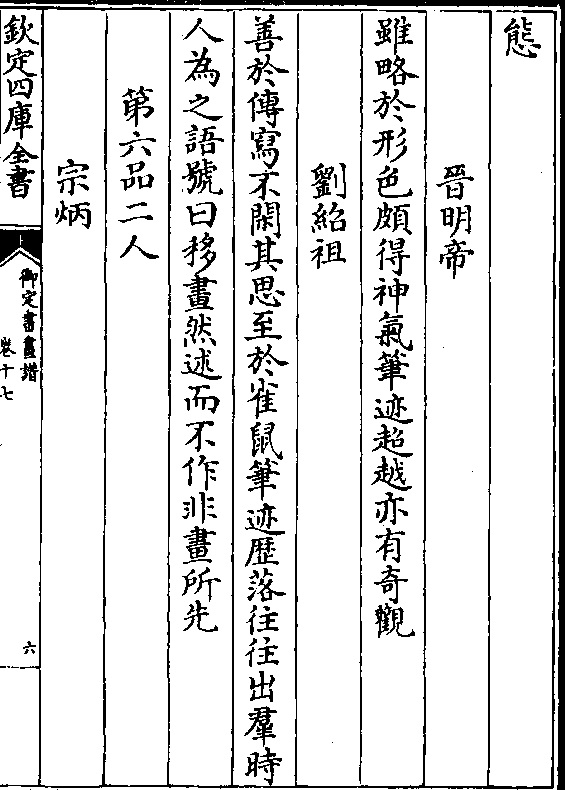 態
晉明帝
雖略於形色頗得神氣筆迹超越亦有奇觀
劉紹祖
善於傳寫不閑其思至於雀鼠筆迹歷落往往出羣時
人為之語號曰移畫然述而不作非畫所先
第六品二人
宗炳
欽定四庫全書
御定書畫譜
卷十七
六